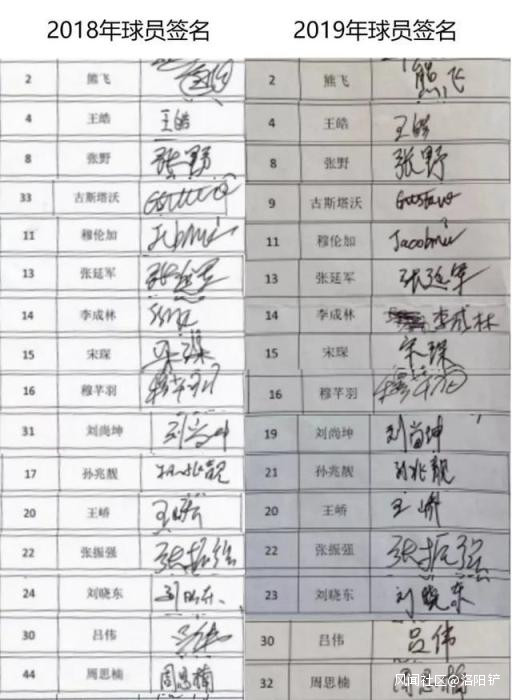 2018年球员签名 2019年球员签名
2 熊飞 2 熊飞 熊飞
4 王皓 王皓 4 王皓 王皓
8 张野 张野 8 张野 张野
33 古斯塔沃 9 古斯塔沃 Gustavo
11 穆伦加 11 穆伦加
13 张延军 张延军 13 张延军 张延军
14 李成林 14 李成林 李成林
15 宋琛 宋琛 15 宋琛 宋琛
16 穆芊羽 16 穆芊羽
31 刘尚坤 刘尚坤 19 刘尚坤 刘尚坤
17 孙兆靓 孙兆靓 21 孙兆靓 孙兆靓
20 王峤 20 王峤 王峤
22 张振强 张振强 22 张振强 张振强
24 刘晓东 23 刘晓东 刘晓东
30 吕伟 30 吕伟 吕伟
44 周思楠 周思楠 32 周思楠
风闻社区@洛阳铲